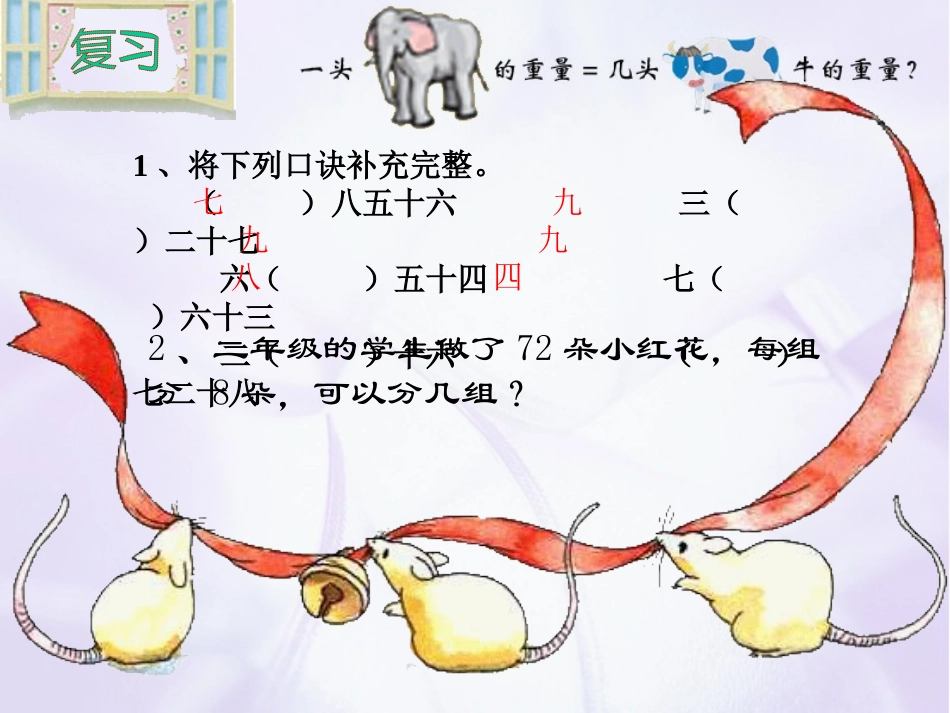 复习
一头 的重量=几头 牛的重量?
1、将下列口诀补充完整。
(七 )八五十六 九 三(
)二十七 九 九
六( )五十四 八 四 七(
)六十三
三( )十八 ( )
七二十八
2、二年级的学生做了72朵小红花,每组
分8朵,可以分几组?